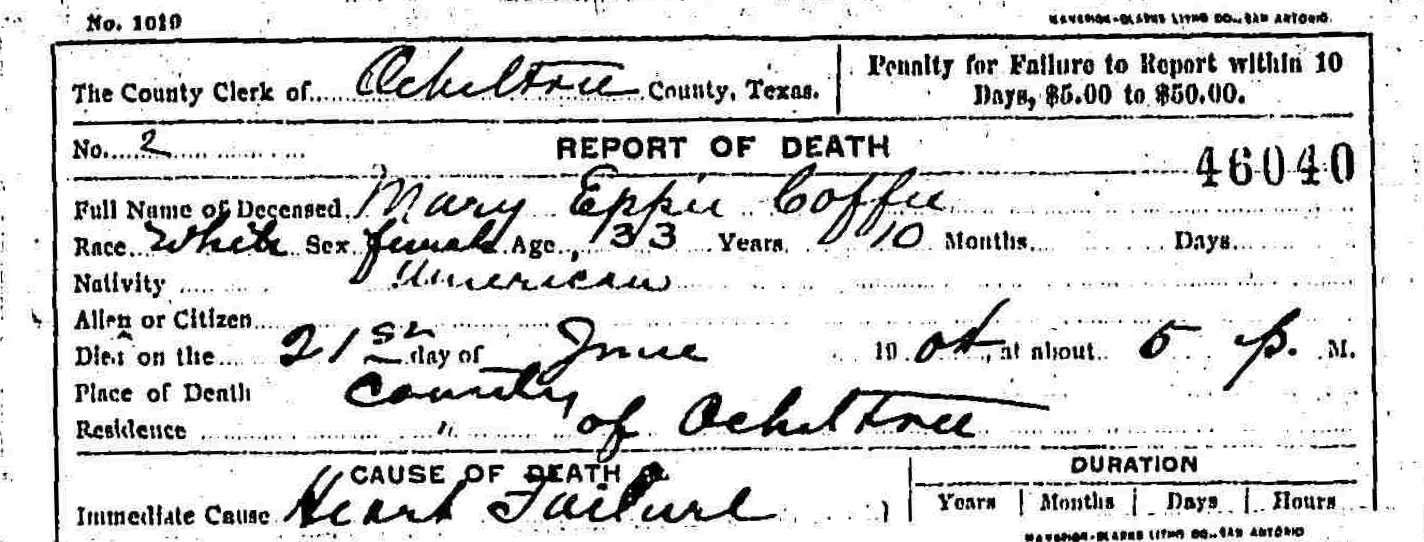 No. 1019
MAVERICK-CLARKE LITHO CO., SAN ANTONIO
The County Clerk of Ochiltree County, Texas.
Penalty for Failure to Report within 10
Days, $5.00 to $50.00.
No. 2
REPORT OF DEATH
46040
Full Name of Deceased Mary Eppie Coffee
Race White Sex female Age 33 Years 10 Months Days
Nativity American
Alien or Citizen
Died on the 21st day of June 190 at about 5 p. M.
Place of Death County
Residence " of Ochiltree
CAUSE OF DEATH
DURATION
Immediate Cause Heart Failure
Years Months Days Hours
MAVERICK-CLARKE LITHO CO., SAN ANTONIO